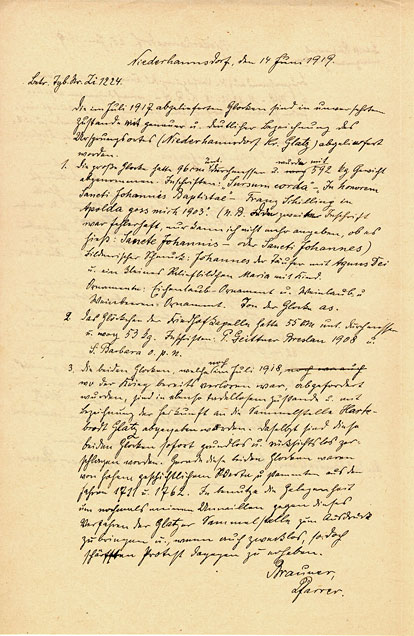 Niederhannsdorf, den 14 Juni 1919.
Betr. Tgb. Nr. Zi 1224.
Die im Juli 1917 abgelieferten Glocken sind in unversehrtem
Zustande mit genauer u. deutlicher Bezeichnung des
Ursprungsortes (Niederhannsdorf Kr. Glatz) abgeliefert
worden.
1. Die große Glocke hatte 96 cm Durchmesser u. wog 592 kg Gewicht
wurde mit
abgenommen. Inschriften: „Sursum corda" – In honorem
Sancti Johannis Baptistae – Franz Schilling in
Apolda goss mich 1903". (N.B. Die zweite Inschrift
war fehlerhaft, nur kann ich nicht mehr angeben, ob es
hieß: Sancte Johannis – oder Sancti Johannes)
Bildnerischer Schmuck: Johannes der Täufer mit Agnus Dei
u. ein kleines Reliefbildchen Maria mit Kind.
Ornamente: Eichenlaub-Ornament u. Weinlaub u.
Weinbeeren Ornament. Ton der Glocke as.
2. Das Glöckchen der Friedhofkapelle hatte 55 cm unt. Durchmesser
u. wog 53 kg. Inschriften: P. Geittner Breslau 1908 u.
S. Barbara o. p. n.
3. Die beiden Glocken, welche noch im Juli 1918,
wo der Krieg bereits verloren war, abgefordert
wurden, sind in ebenso tadellosem Zustande u. mit
Bezeichnung der Herkunft an die Sammelstelle
Glatz abgegeben worden. Daselbst sind diese
beiden Glocken sofort grundlos u. rücksichtslos zer-
schlagen worden. Gerade diese beiden Glocken waren
von hohem geschichtlichen Werte u. stammten aus den
Jahren 1711 u. 1762. Ich benutze die Gelegenheit
um nochmals meinen Unwillen gegen dieses
Verfahren der Glatzer Sammelstelle zum Ausdruck
zu bringen u., wenn auch zwecklos, so doch
schärfsten Protest dagegen zu erheben.
Brauner,
Pfarrer.